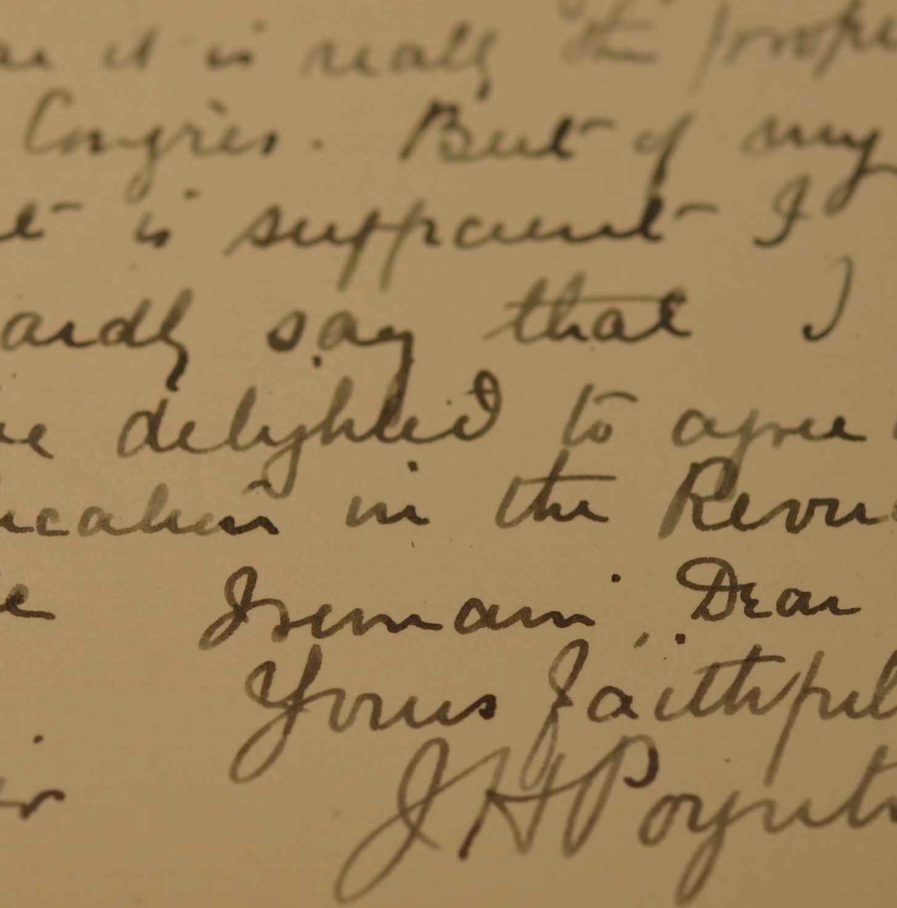 it is really the prope
Congres. But if my
t is sufficient I
ardly say that I
e delighted to agree
ication in the Revie
I remain, Dear
Yours faithful
J H Poynt